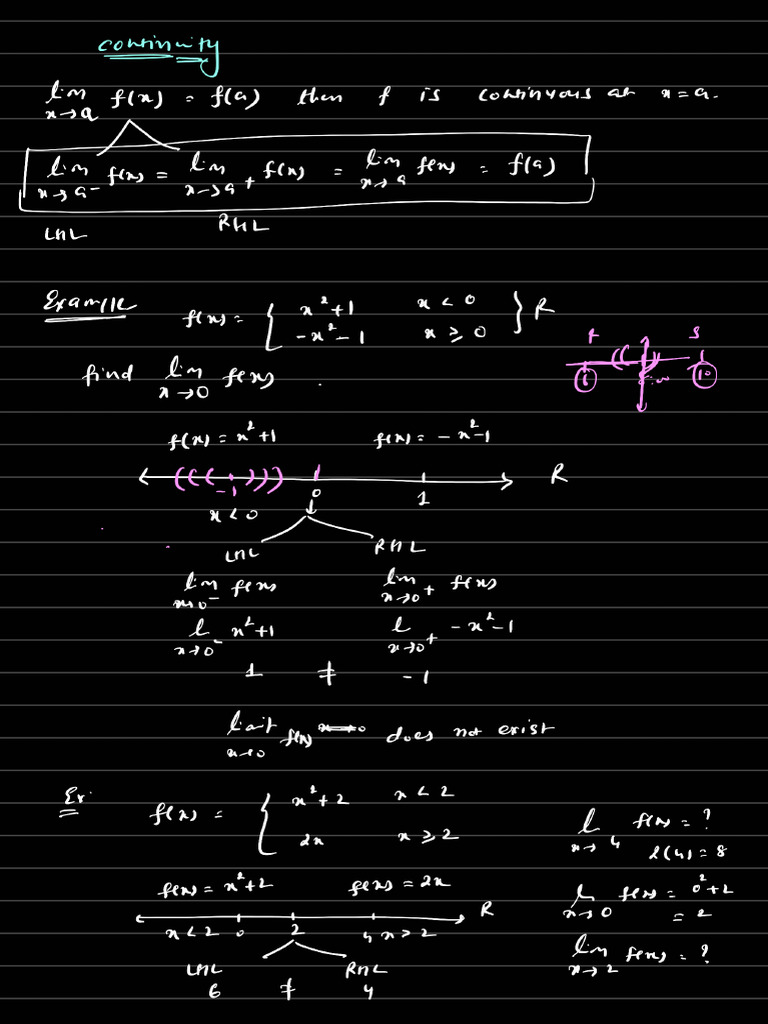 continuity
lim x→a f(x) = f(a) then f is continuous at x=a.
lim x→a⁻ f(x) = lim x→a⁺ f(x) = lim x→a f(x) = f(a)
LHL RHL
Example f(x) = { x²+1 x < 0
-x²-1 x ⩾ 0 } R
find lim x→0 f(x) .
f(x) = x²+1 f(x) = -x²-1
-1 0 1 R
x < 0
LHL RHL
lim x→0⁻ f(x) lim x→0⁺ f(x)
l x→0⁻ x²+1 l x→0⁺ -x²-1
1 ≠ -1
limit x→0 f(x) does not exist
Ex. f(x) = { x²+2 x < 2
2x x ⩾ 2
l x→4 f(x) = ?
2(4) = 8
f(x) = x²+2 f(x) = 2x
l x→0 f(x) = 0²+2
= 2
x < 2 0 2 4 x > 2 R
lim x→2 f(x) = ?
LHL RHL
6 ≠ 4